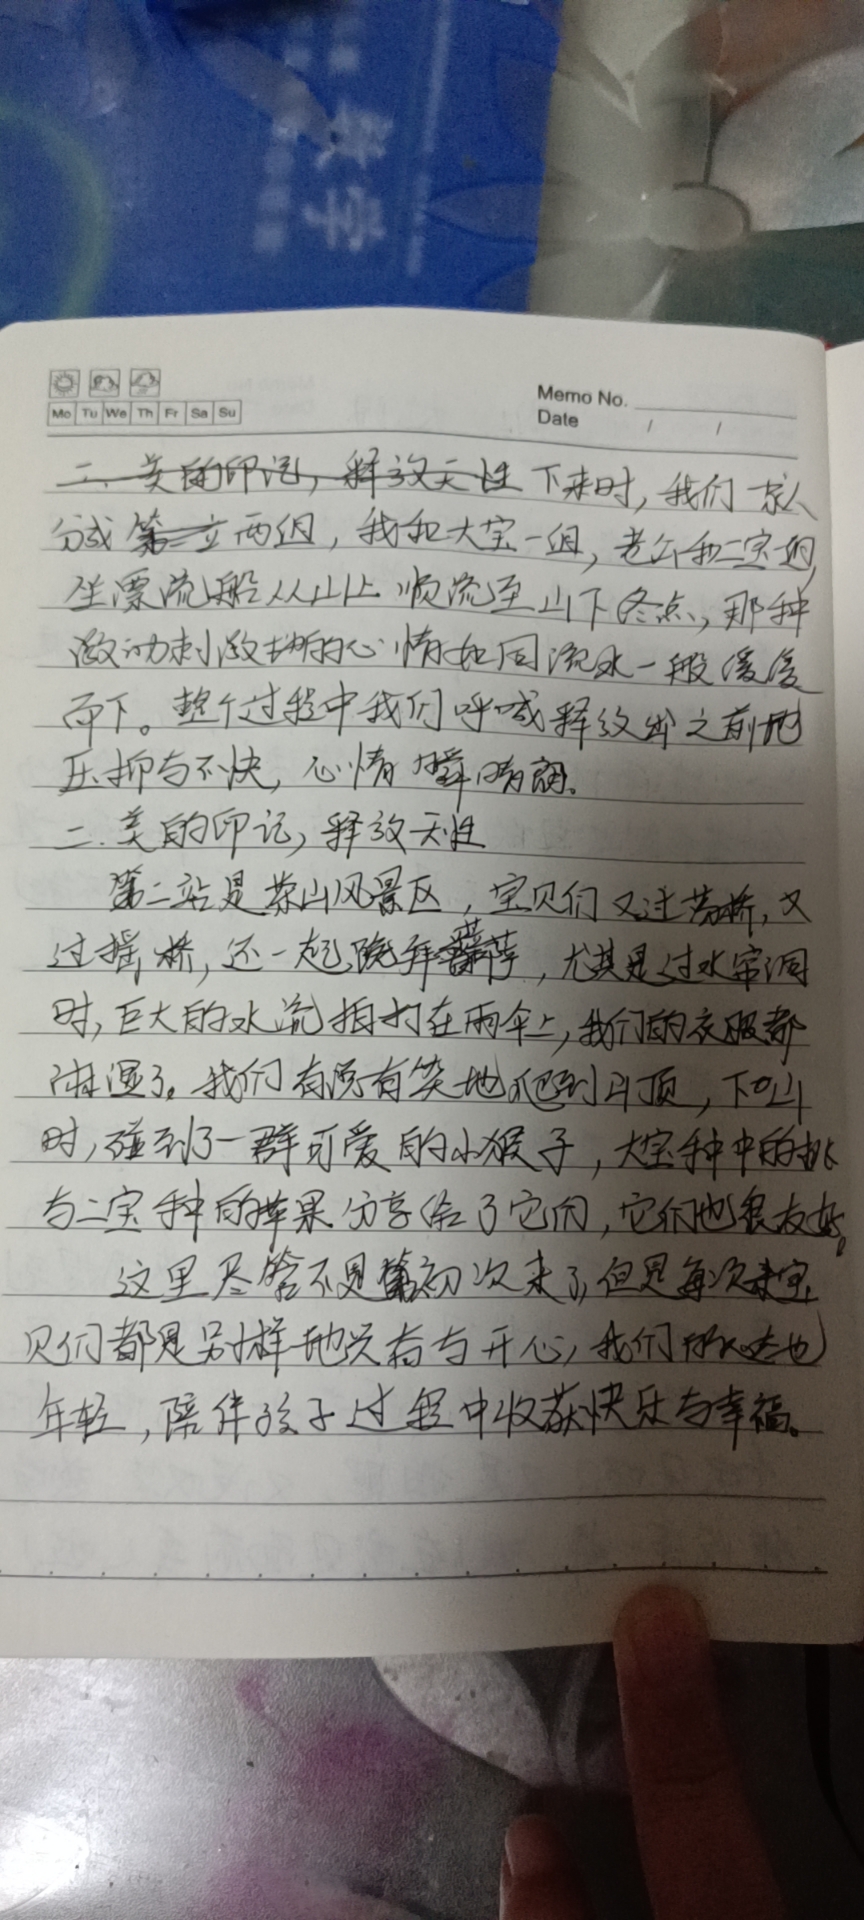 数学
Mo Tu We Th Fr Sa Su
Memo No.
Date / /
二、美的印记，释放天性 下来时，我们一家人
分成 第二立 两组，我和大宝一组，老公和二宝一组，
坐漂流船从山上 顺流至山下终点，那种
激动刺激的心情如同流水一般缓缓
而下。整个过程中我们呼喊释放出之前的
压抑与不快，心情瞬晴朗。
二.美的印记，释放天性
第二站是茶山风景区，宝贝们又过荡桥，又
过摇桥，还一起，尤其是过水帘洞
时，巨大的水流拍打在雨伞上，我们的衣服都
淋湿了。我们有说有笑地爬到山顶，下山
时，碰到了一群可爱的小猴子，大宝手中的桃
与二宝手中的苹果分享给了它们，它们也很友好。
这里尽管不是第初次来了，但是每次来宝
贝们都是别样地兴奋与开心，我们的心态也
年轻，陪伴孩子过程中收获快乐与幸福。